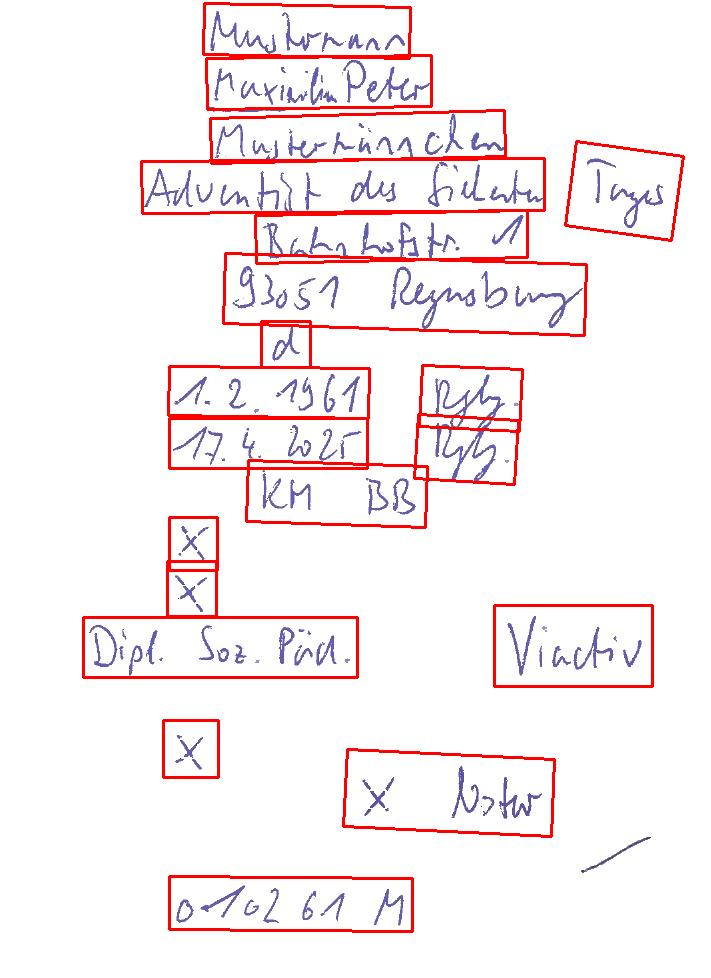 Mustermann
Maximilian Peter
Mustermännchen
Adventist des Siebenten Tages
Bahnhofstr. 1
93051 Regensburg
d
1. 2. 1961 Rgbg.
17. 4. 2025 Rgbg.
KM BB
X
X
Dipl. Soz. Päd. Viactiv
X
X
010261 M